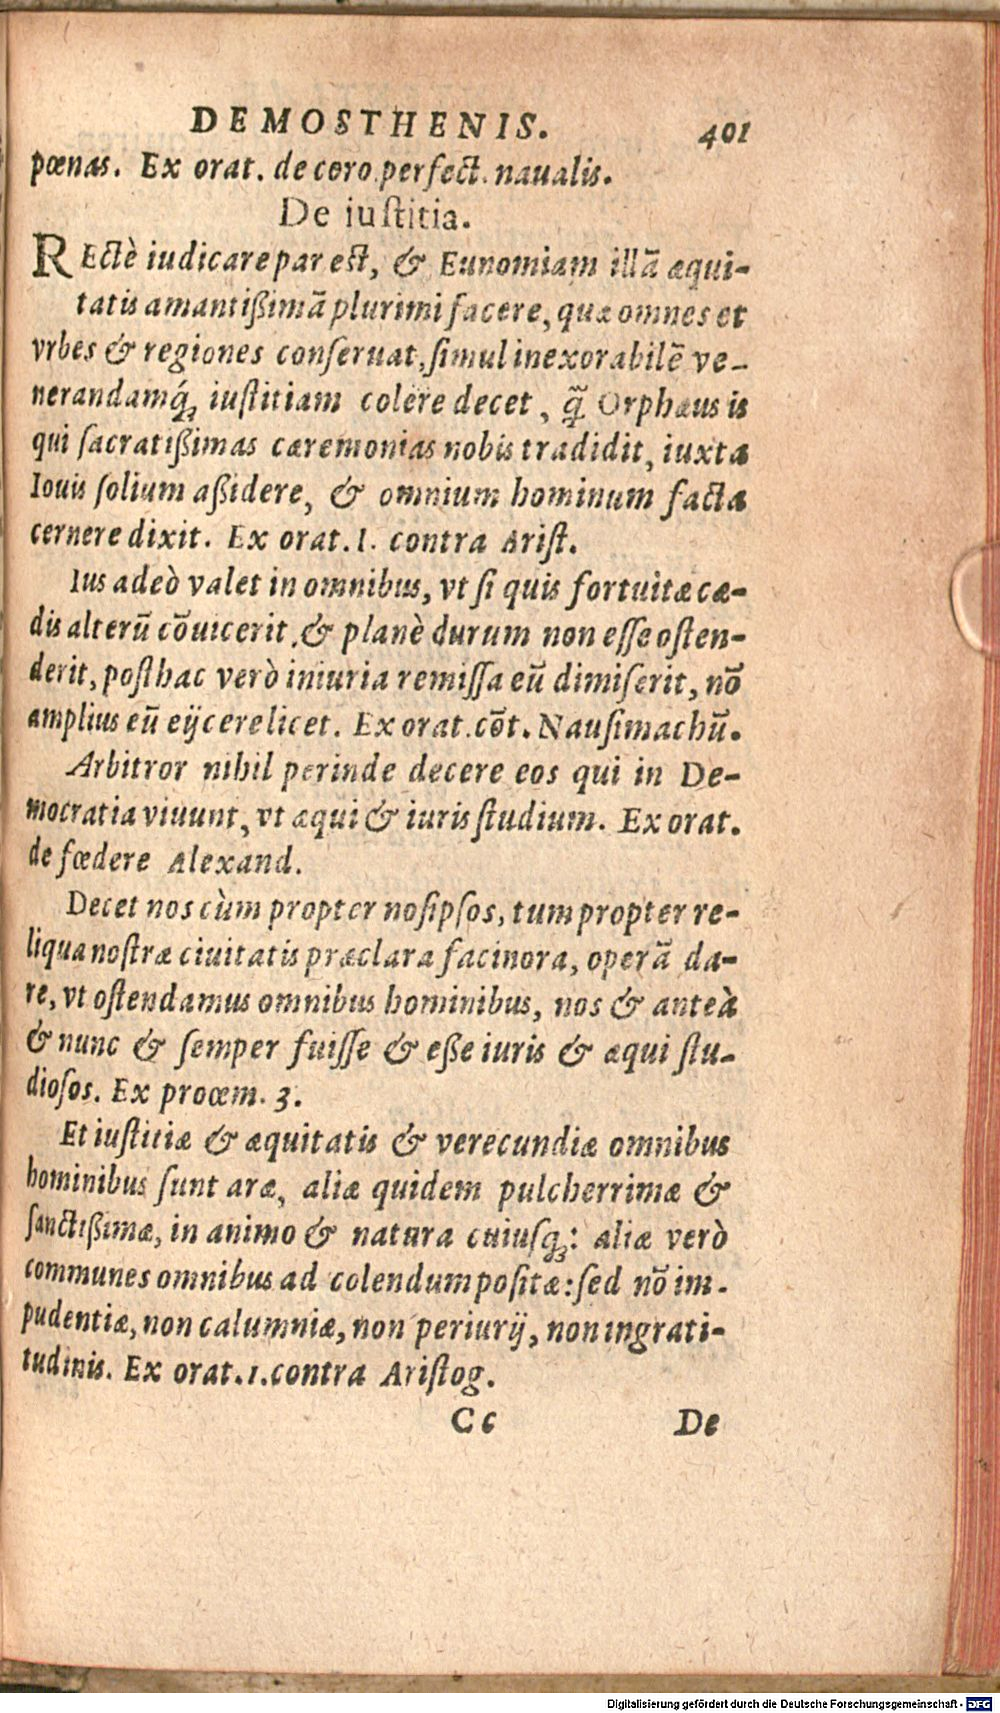 DEMOSTHENIS. 401
pœnas. Ex orat. de coro perfect. naualis.
De iustitia.
REctè iudicare par est, & Eunomiam illā æqui-
tatis amantißimā plurimi facere, quæ omnes et
vrbes & regiones conseruat, simul inexorabilē ve-
nerandamq́; iustitiam colere decet, q̄ Orphæus is
qui sacratißimas cæremonias nobis tradidit, iuxta
Iouis solium aßidere, & omnium hominum facta
cernere dixit. Ex orat. 1. contra Arist.
Ius adeò valet in omnibus, vt si quis fortuitæ cæ-
dis alterū cōuicerit, & planè durum non esse osten-
derit, posthac verò iniuria remissa eū dimiserit, nō
amplius eū eijcere licet. Ex orat. cōt. Nausimachū.
Arbitror nihil perinde decere eos qui in De-
mocratia viuunt, vt æqui & iuris studium. Ex orat.
de fœdere Alexand.
Decet nos cùm propter nosipsos, tum propter re-
liqua nostræ ciuitatis præclara facinora, operā da-
re, vt ostendamus omnibus hominibus, nos & anteà
& nunc & semper fuisse & eße iuris & æqui stu-
diosos. Ex proœm. 3.
Et iustitiæ & æquitatis & verecundiæ omnibus
hominibus sunt aræ, aliæ quidem pulcherrimæ &
sanctißimæ, in animo & natura cuiusq;: aliæ verò
communes omnibus ad colendum positæ: sed nō im-
pudentiæ, non calumniæ, non periurij, non ingrati-
tudinis. Ex orat. 1. contra Aristog.
Cc De
Digitalisierung gefördert durch die Deutsche Forschungsgemeinschaft - DFG